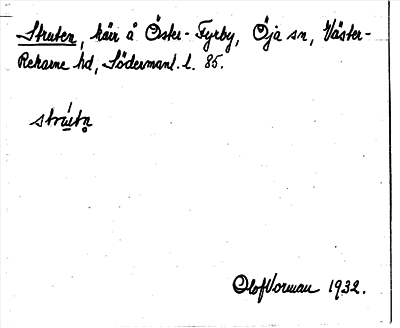 Struten, kärr å Öster-Fyrby, Öja sn, Väster-
Rekarne hd, Södermanl. l. 85.
strútn̥
Olof Vorman 1932.